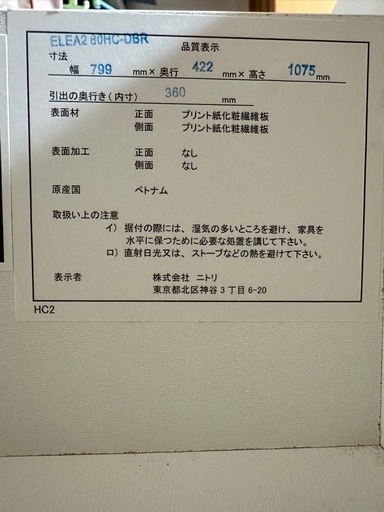 ELEA2 80HC-DBR
品質表示
寸法
幅 799 mm× 奥行 422 mm× 高さ 1075 mm
引出の奥行き(内寸) 360 mm
表面材 正面 プリント紙化粧繊維板
側面 プリント紙化粧繊維板
表面加工 正面 なし
側面 なし
原産国 ベトナム
取扱い上の注意
イ) 据付の際には、湿気の多いところを避け、家具を
水平に保つために必要な処置を講じて下さい。
ロ) 直射日光又は、ストーブなどの熱を避けて下さい。
表示者 株式会社 ニトリ
東京都北区神谷3丁目6-20
HC2